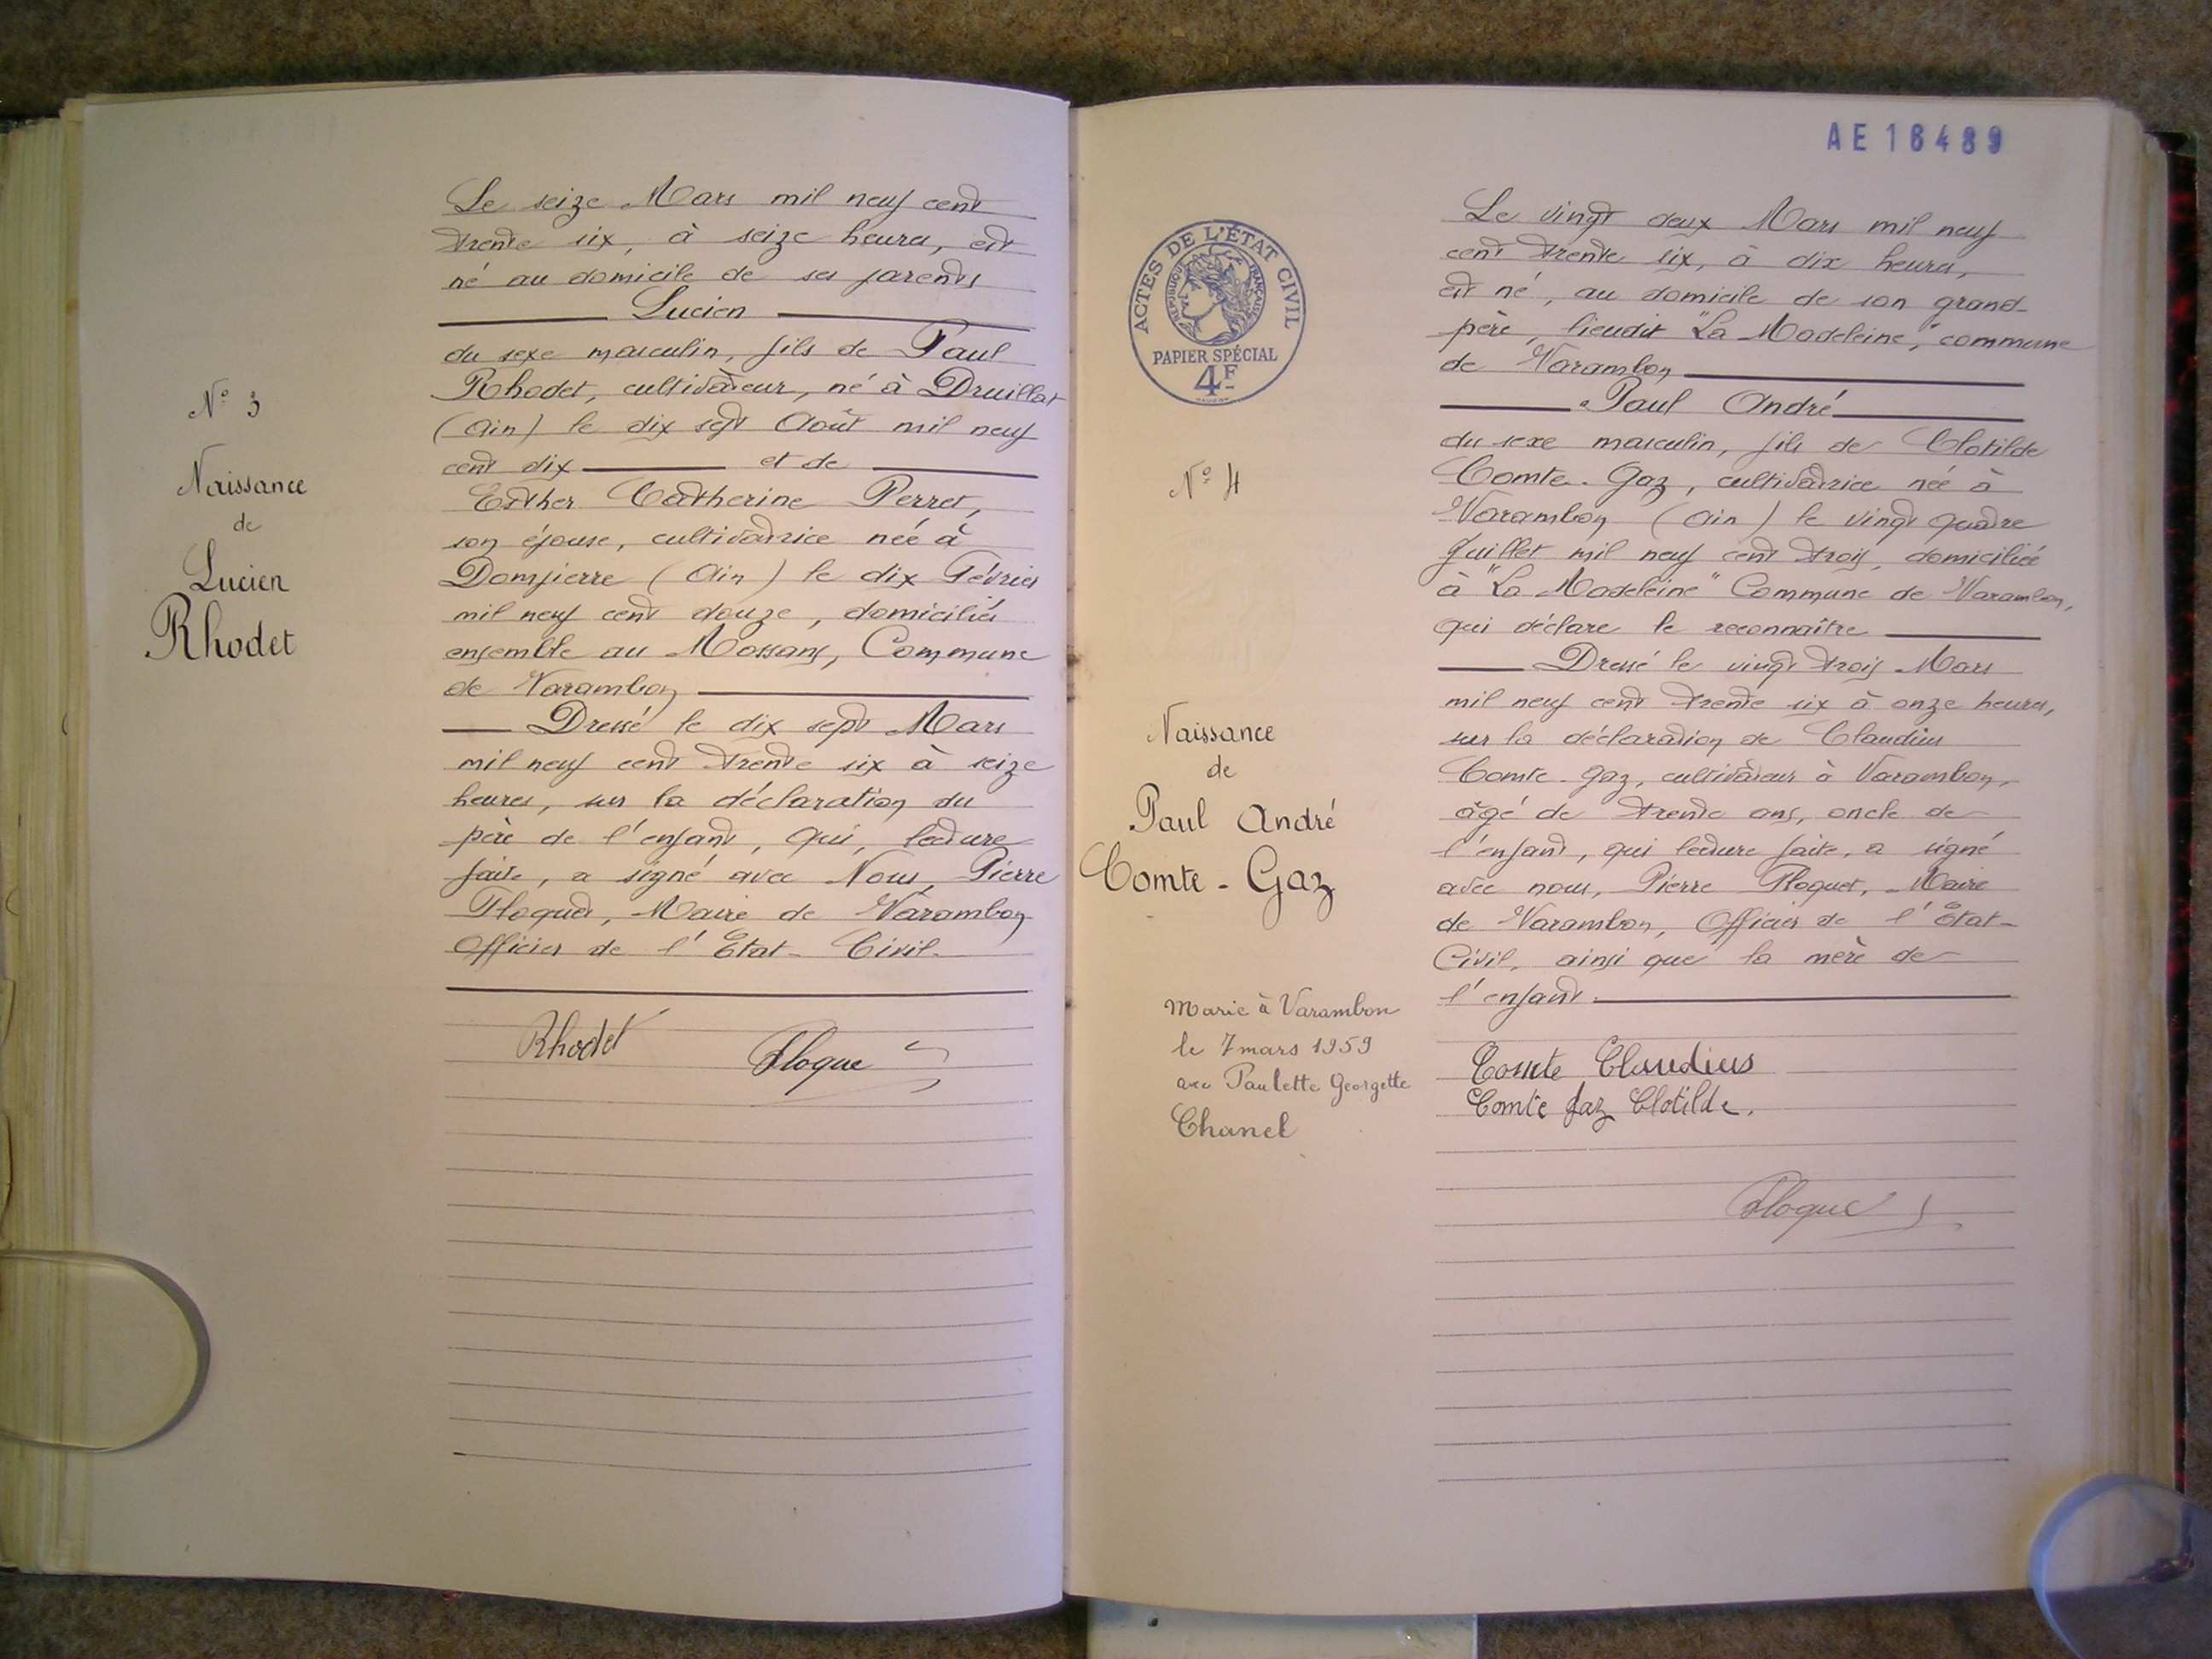 N° 3
Naissance
de
Lucien
Rhodet
Le seize Mars mil neuf cent
trente six, à seize heures, est
né au domicile de ses parents
Lucien
du sexe masculin, fils de Paul
Rhodet, cultivateur, né à Druillat
(Ain) le dix sept Août mil neuf
cent dix et de
Esther Catherine Perret,
son épouse, cultivatrice née à
Dompierre (Ain) le dix Février
mil neuf cent douze, domiciliés
ensemble au Mossans, Commune
de Varambon
Dressé le dix sept Mars
mil neuf cent trente six à seize
heures, sur la déclaration du
père de l'enfant, qui, lecture
faite, a signé avec Nous, Pierre
Floquet, Maire de Varambon
Officier de l'Etat-Civil.
Rhodet
Floquet
AE 16489
ACTES DE L'ÉTAT CIVIL
RÉPUBLIQUE FRANÇAISE
PAPIER SPÉCIAL
4F
N° 4
Naissance
de
Paul André
Comte-Gaz
Marié à Varambon
le 7 mars 1959
avec Paulette Georgette
Chanel
Le vingt deux Mars mil neuf
cent trente six, à dix heures,
est né, au domicile de son grand-
père, lieudit "La Madeleine", commune
de Varambon
Paul André
du sexe masculin, fils de Clotilde
Comte-Gaz, cultivatrice née à
Varambon (Ain) le vingt quatre
Juillet mil neuf cent trois, domiciliée
à "La Madeleine" Commune de Varambon,
qui déclare le reconnaître
Dressé le vingt trois Mars
mil neuf cent trente six à onze heures,
sur la déclaration de Claudius
Comte-Gaz, cultivateur à Varambon,
âgé de trente ans, oncle de
l'enfant, qui lecture faite, a signé
avec nous, Pierre Floquet, Maire
de Varambon, Officier de l'Etat-
Civil, ainsi que la mère de
l'enfant.
Comte Claudius
Comte Gaz Clotilde.
Floquet